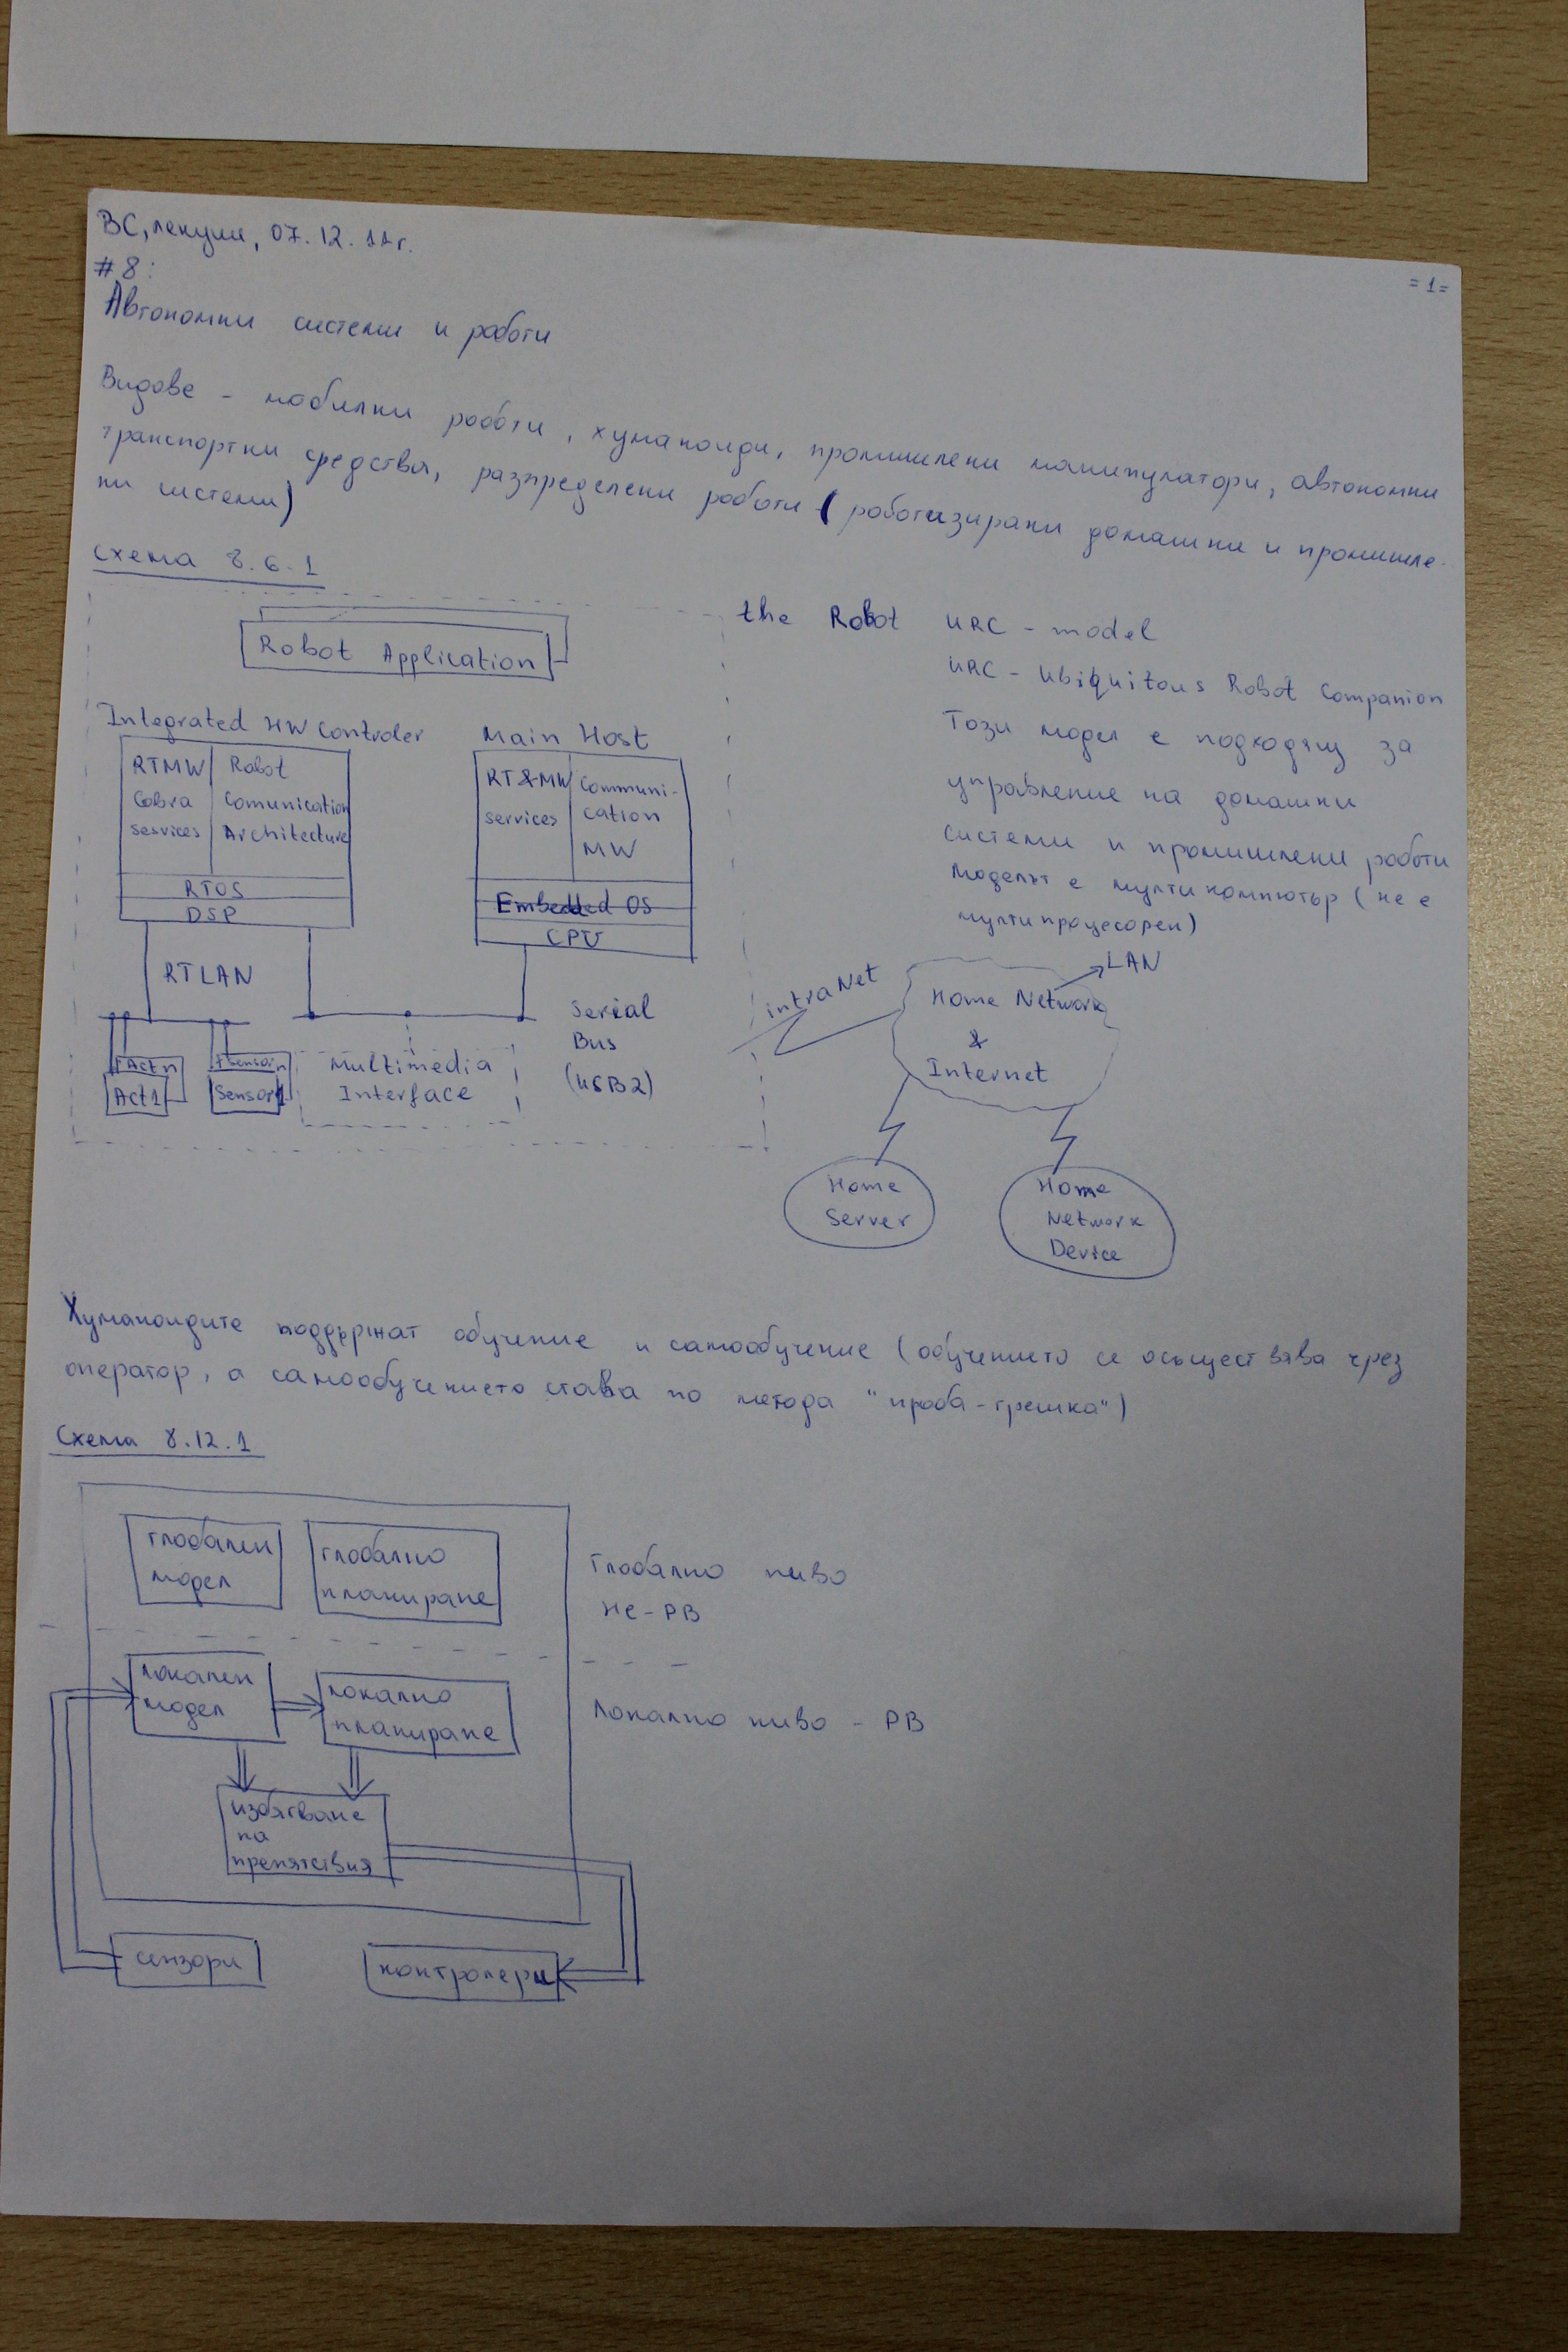 ВС, лекции, 07.12.11г.
#8:
= 1 =
Автономни системи и роботи
Видове - мобилни роботи, хуманоиди, промишлени манипулатори, автономни
транспортни средства, разпределени роботи (роботизирани домашни и промишле-
ни системи)
схема 8.6.1
the Robot
URC - model
URC - Ubiquitous Robot Companion
Този модел е подходящ за
управление на домашни
системи и промишлени роботи
Моделът е мултикомпютър (не е
мултипроцесорен)
Robot Application
Integrated HW Controler
RTMW
Cobra
services
Robot
Comunication
Architecture
RTOS
DSP
Main Host
RT&MW
services
Communi-
cation
MW
Embedded OS
CPU
RTLAN
Serial
Bus
(USB2)
Act n
Act1
Sensor n
Sensor1
Multimedia
Interface
intraNet
LAN
Home Network
&
Internet
Home
Server
Home
Network
Device
Хуманоидите поддържат обучение и самообучение (обучението се осъществява чрез
оператор, а самообучението става по метода "проба-грешка")
Схема 8.12.1
глобален
модел
глобално
планиране
Глобално ниво
не-РВ
локален
модел
локално
планиране
Локално ниво - РВ
избягване
на
препятствия
сензори
контролери